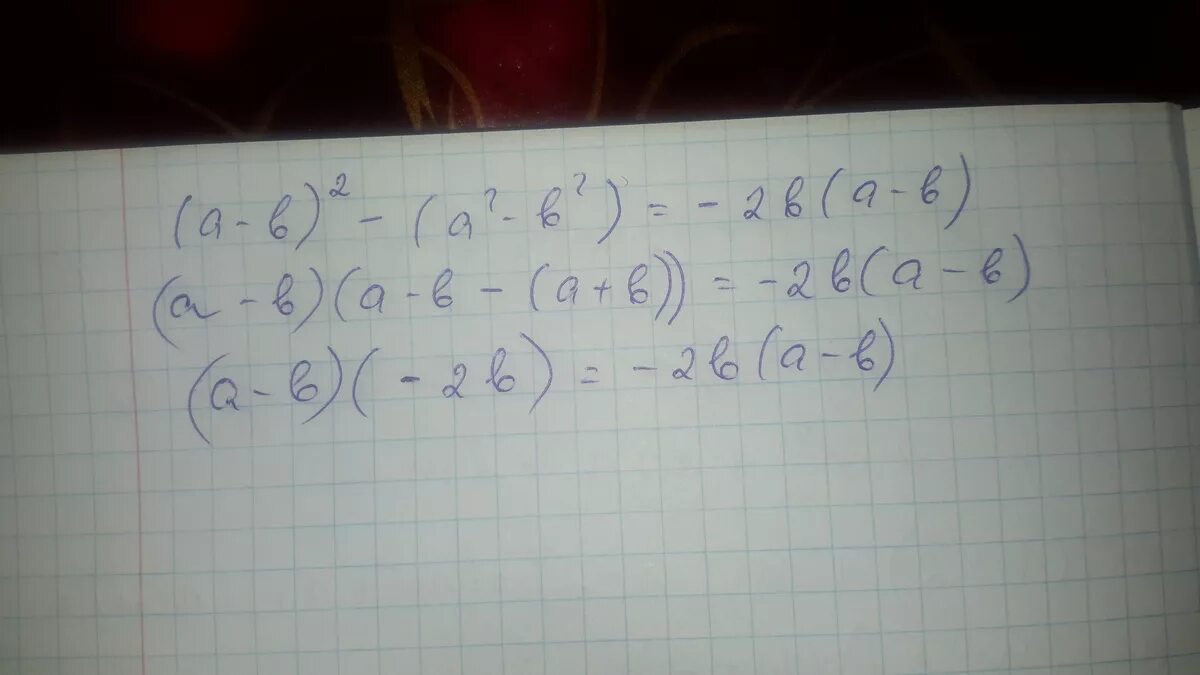 (a-b)² - (a²-b²) = -2b(a-b)
(a-b)(a-b-(a+b)) = -2b(a-b)
(a-b)(-2b) = -2b(a-b)